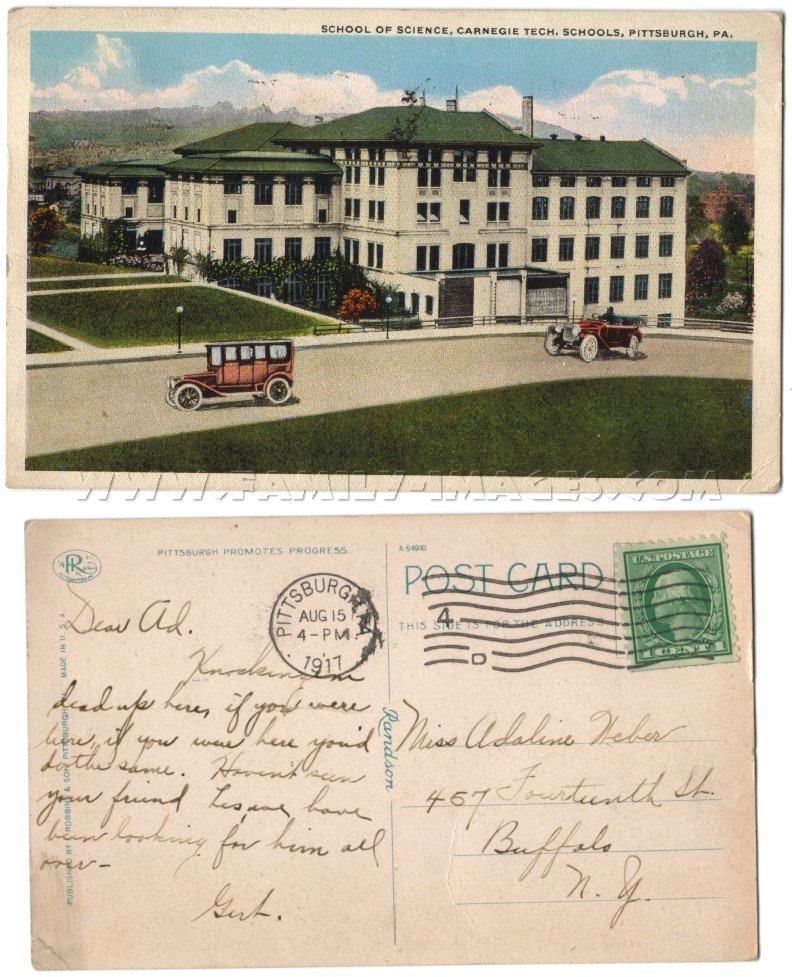 SCHOOL OF SCIENCE, CARNEGIE TECH. SCHOOLS, PITTSBURGH, PA.
WWW.FAMILY-IMAGES.COM
PITTSBURGH PROMOTES PROGRESS.
PITTSBURGH
AUG 15
4-PM
1917
A-54910
POST CARD
THIS SIDE IS FOR THE ADDRESS
4
D
U.S. POSTAGE
1 CENT 1
MADE IN U.S.A.
PUBLISHED BY I. ROBBINS & SON, PITTSBURGH, PA.
Randson
Dear Ad.
Knocking em
dead up here, if you were
here, if you were here you'd
do the same. Haven't seen
your friend have
been looking for him all
over-
Gert.
Miss Adaline Weber
457 Fourteenth St.
Buffalo
N. Y.